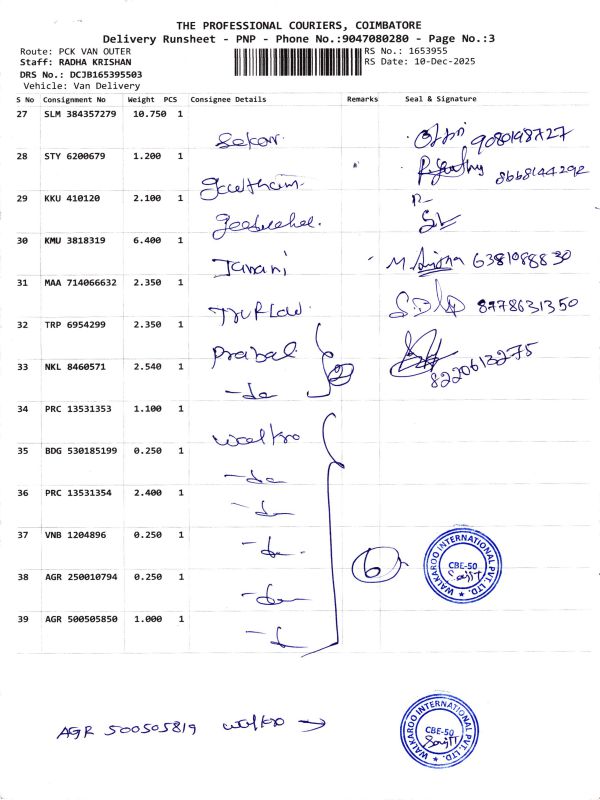 THE PROFESSIONAL COURIERS, COIMBATORE
Delivery Runsheet - PNP - Phone No.:9047080280 - Page No.:3
Route: PCK VAN OUTER
RS No.: 1653955
Staff: RADHA KRISHAN
RS Date: 10-Dec-2025
DRS No.: DCJB165395503
Vehicle: Van Delivery
S No Consignment No Weight PCS Consignee Details Remarks Seal & Signature
27 SLM 384357279 10.750 1
Sekar. 9080198727
28 STY 6200679 1.200 1
Gowtham. 8668144292
29 KKU 410120 2.100 1
30 KMU 3818319 6.400 1
Janani M. 6381098830
31 MAA 714066632 2.350 1
8978631350
32 TRP 6954299 2.350 1
Prabal 2 8220613275
33 NKL 8460571 2.540 1
-do
34 PRC 13531353 1.100 1
walkro
35 BDG 530185199 0.250 1
-do
36 PRC 13531354 2.400 1
-do
37 VNB 1204896 0.250 1
-do-
6
WALKAROO INTERNATIONAL PVT. LTD. ★
CBE-50
38 AGR 250010794 0.250 1
-do
39 AGR 500505850 1.000 1
-d
AGR 500505819 walkro →
WALKAROO INTERNATIONAL PVT. LTD. ★
CBE-50